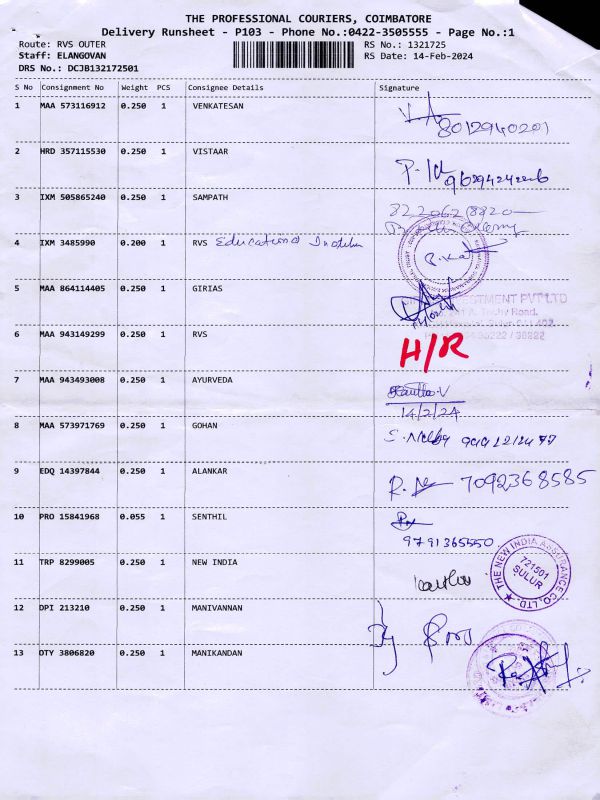 THE PROFESSIONAL COURIERS, COIMBATORE
Delivery Runsheet - P103 - Phone No.:0422-3505555 - Page No.:1
Route: RVS OUTER RS No.: 1321725
Staff: ELANGOVAN RS Date: 14-Feb-2024
DRS No.: DCJB132172501
S No Consignment No Weight PCS Consignee Details Signature
1 MAA 573116912 0.250 1 VENKATESAN
8012940201
2 HRD 357115530 0.250 1 VISTAAR
3 IXM 505865240 0.250 1 SAMPATH
4 IXM 3485990 0.200 1 RVS Educational
5 MAA 864114405 0.250 1 GIRIAS
PVT LTD
6 MAA 943149299 0.250 1 RVS
H/R
7 MAA 943493008 0.250 1 AYURVEDA
14/2/24
8 MAA 573971769 0.250 1 GOHAN
9 EDQ 14397844 0.250 1 ALANKAR
7092368585
10 PRO 15841968 0.055 1 SENTHIL
9791365550
11 TRP 8299005 0.250 1 NEW INDIA
THE NEW INDIA ASSURANCE CO. LTD.
721501
SULUR
12 DPI 213210 0.250 1 MANIVANNAN
13 DTY 3806820 0.250 1 MANIKANDAN